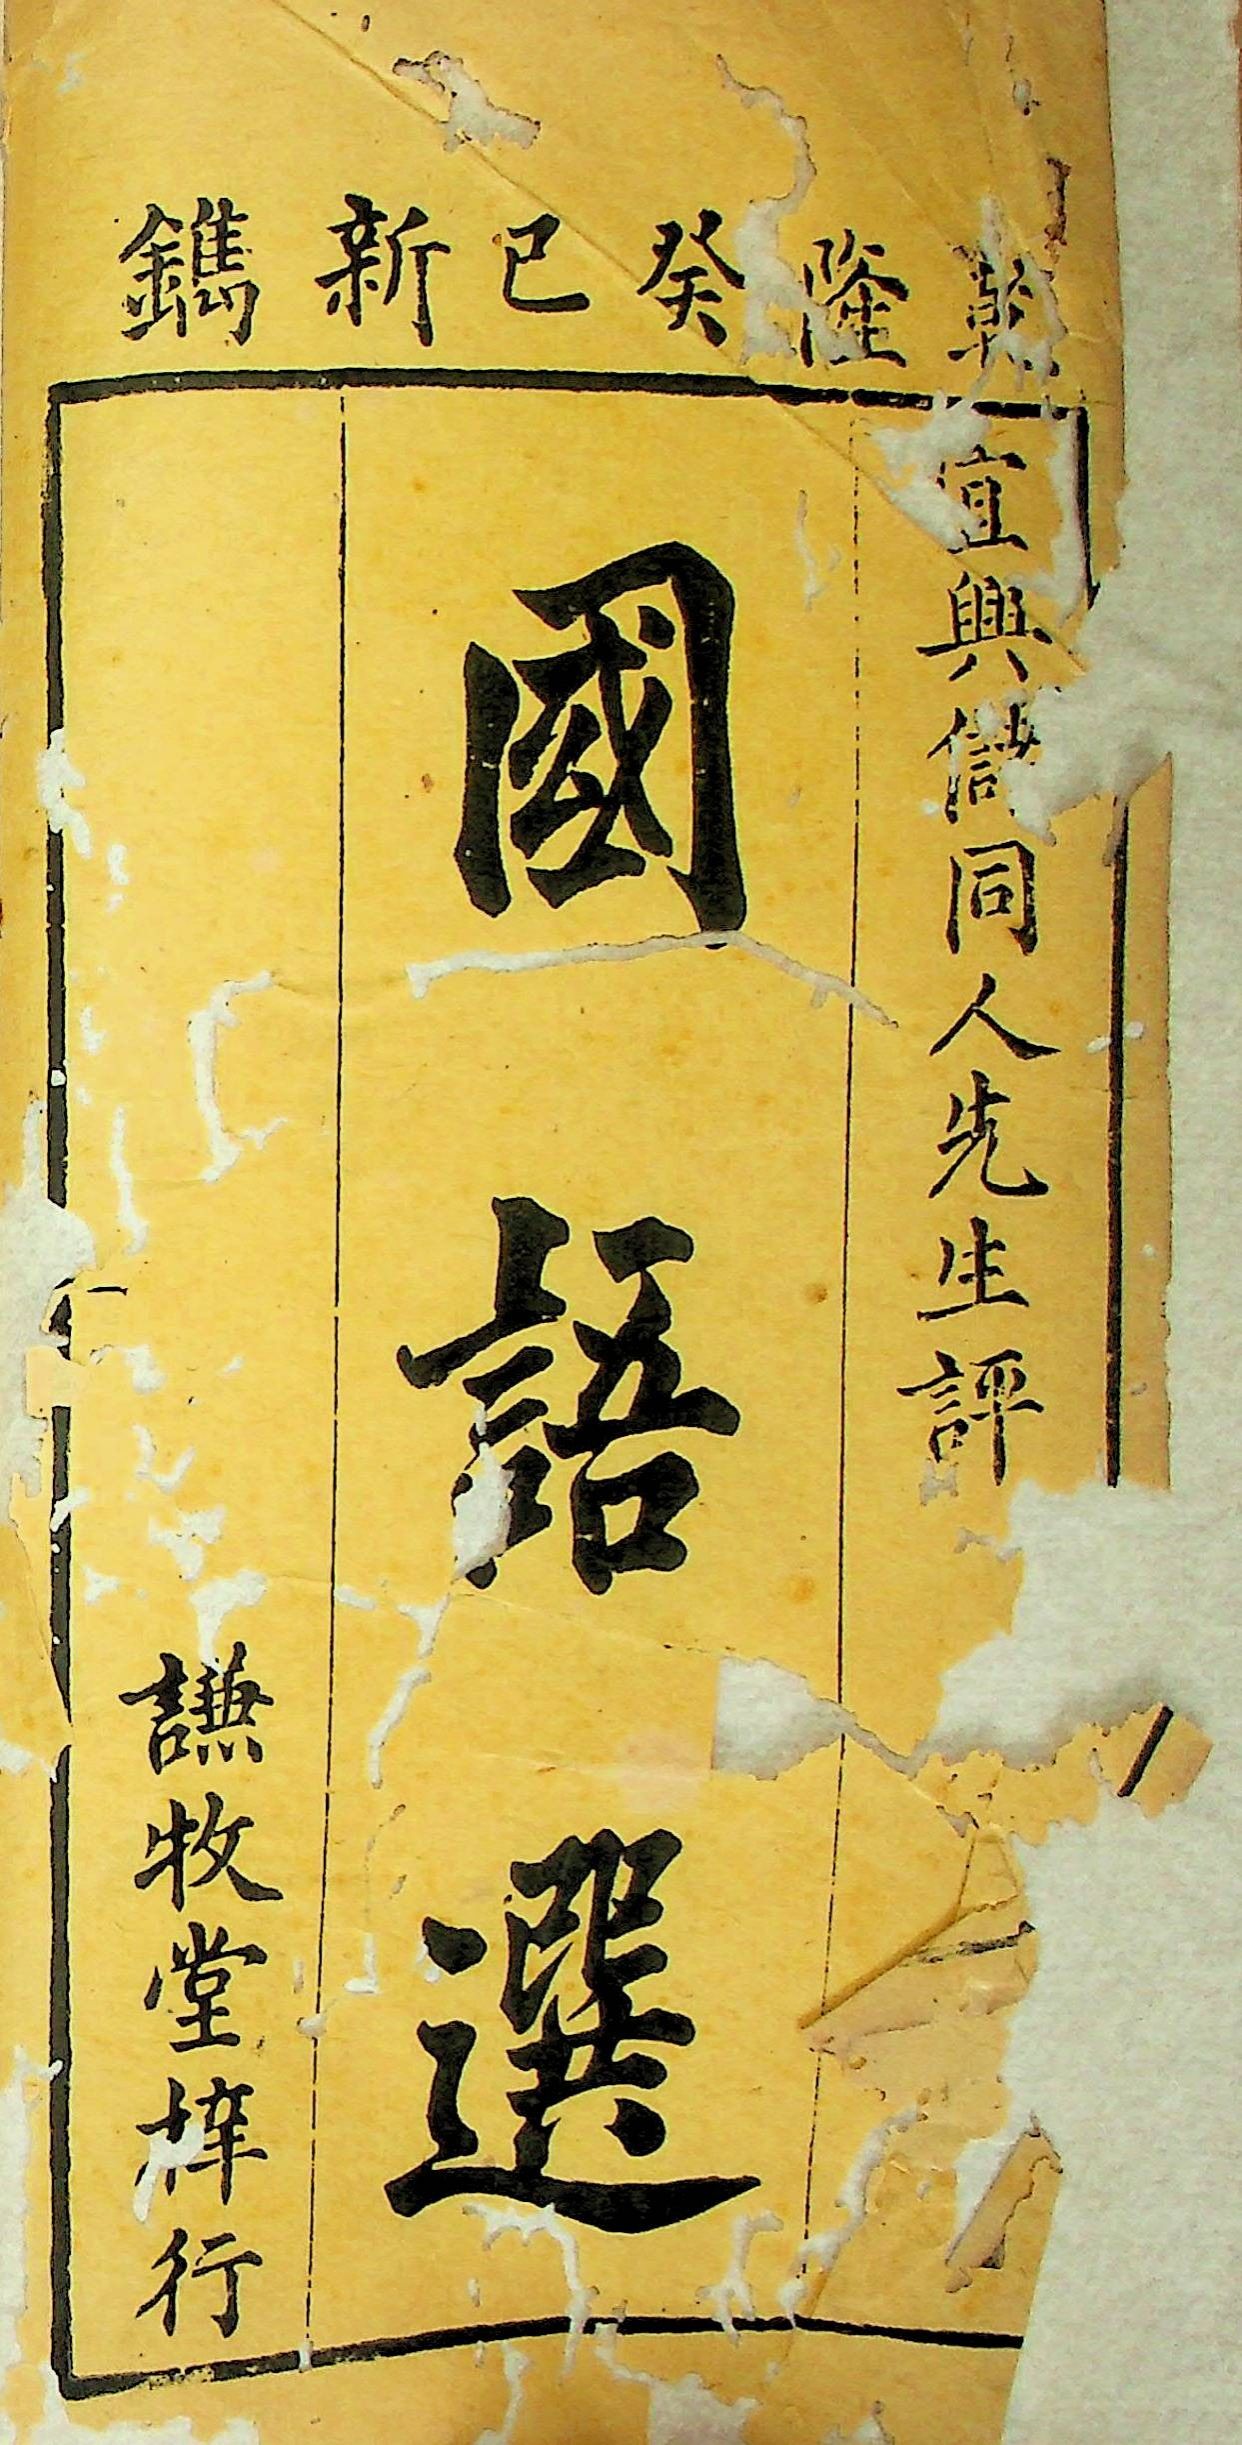 乾隆癸巳新鐫
宜興儲同人先生評
國語選
謙牧堂梓行